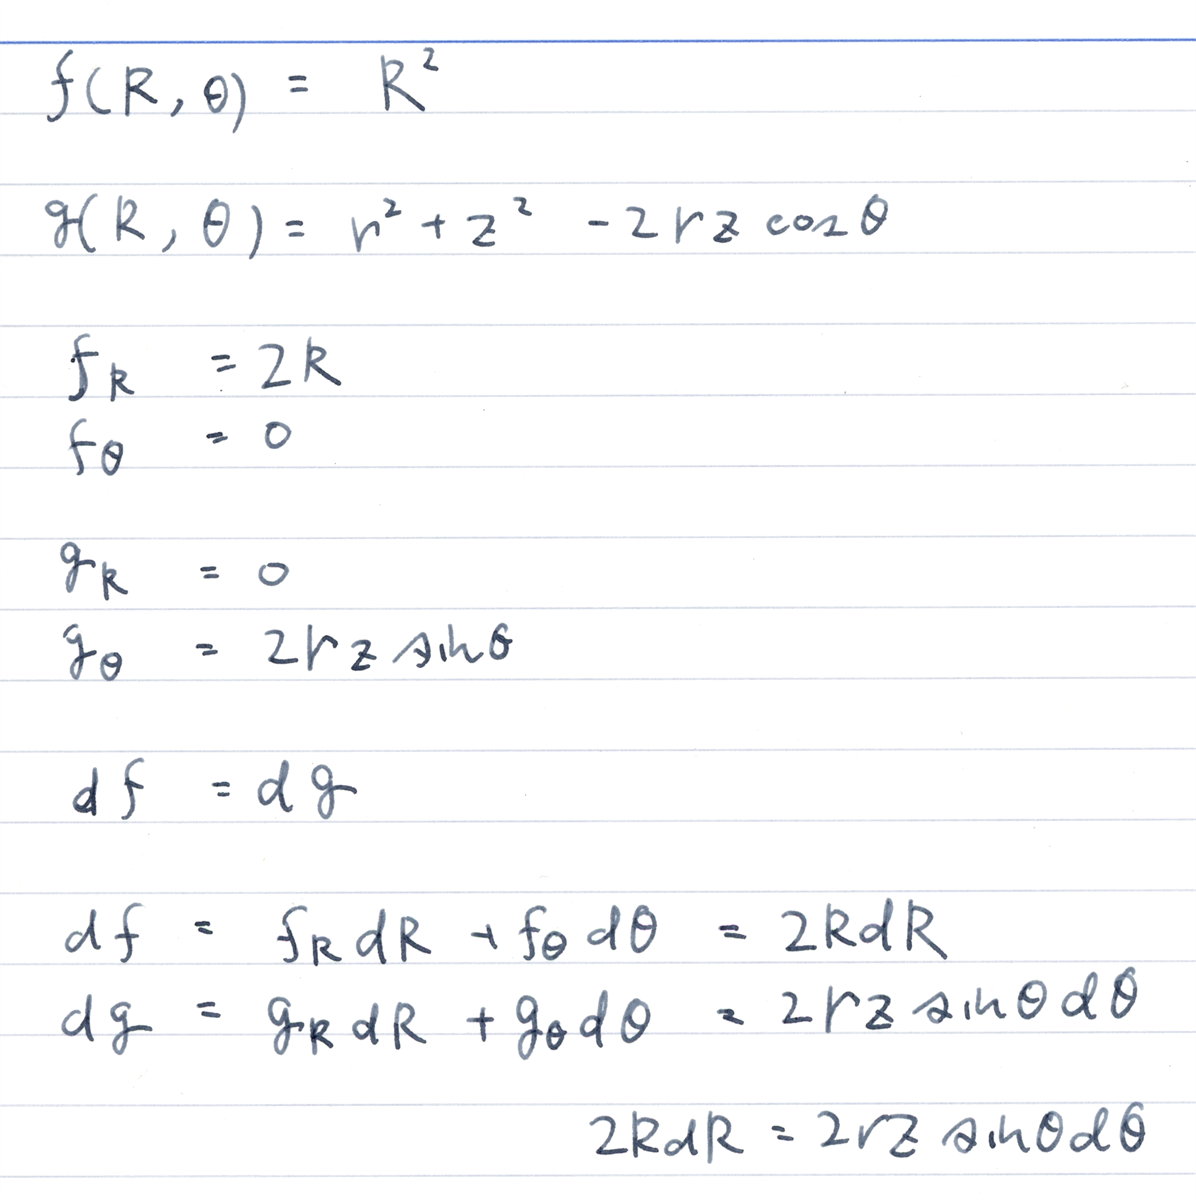 f(R, θ) = R²
g(R, θ) = r² + z² - 2rz cosθ
f_R = 2R
f_θ = 0
g_R = 0
g_θ = 2rz sinθ
df = dg
df = f_R dR + f_θ dθ = 2RdR
dg = g_R dR + g_θ dθ = 2rz sinθdθ
2RdR = 2rz sinθdθ